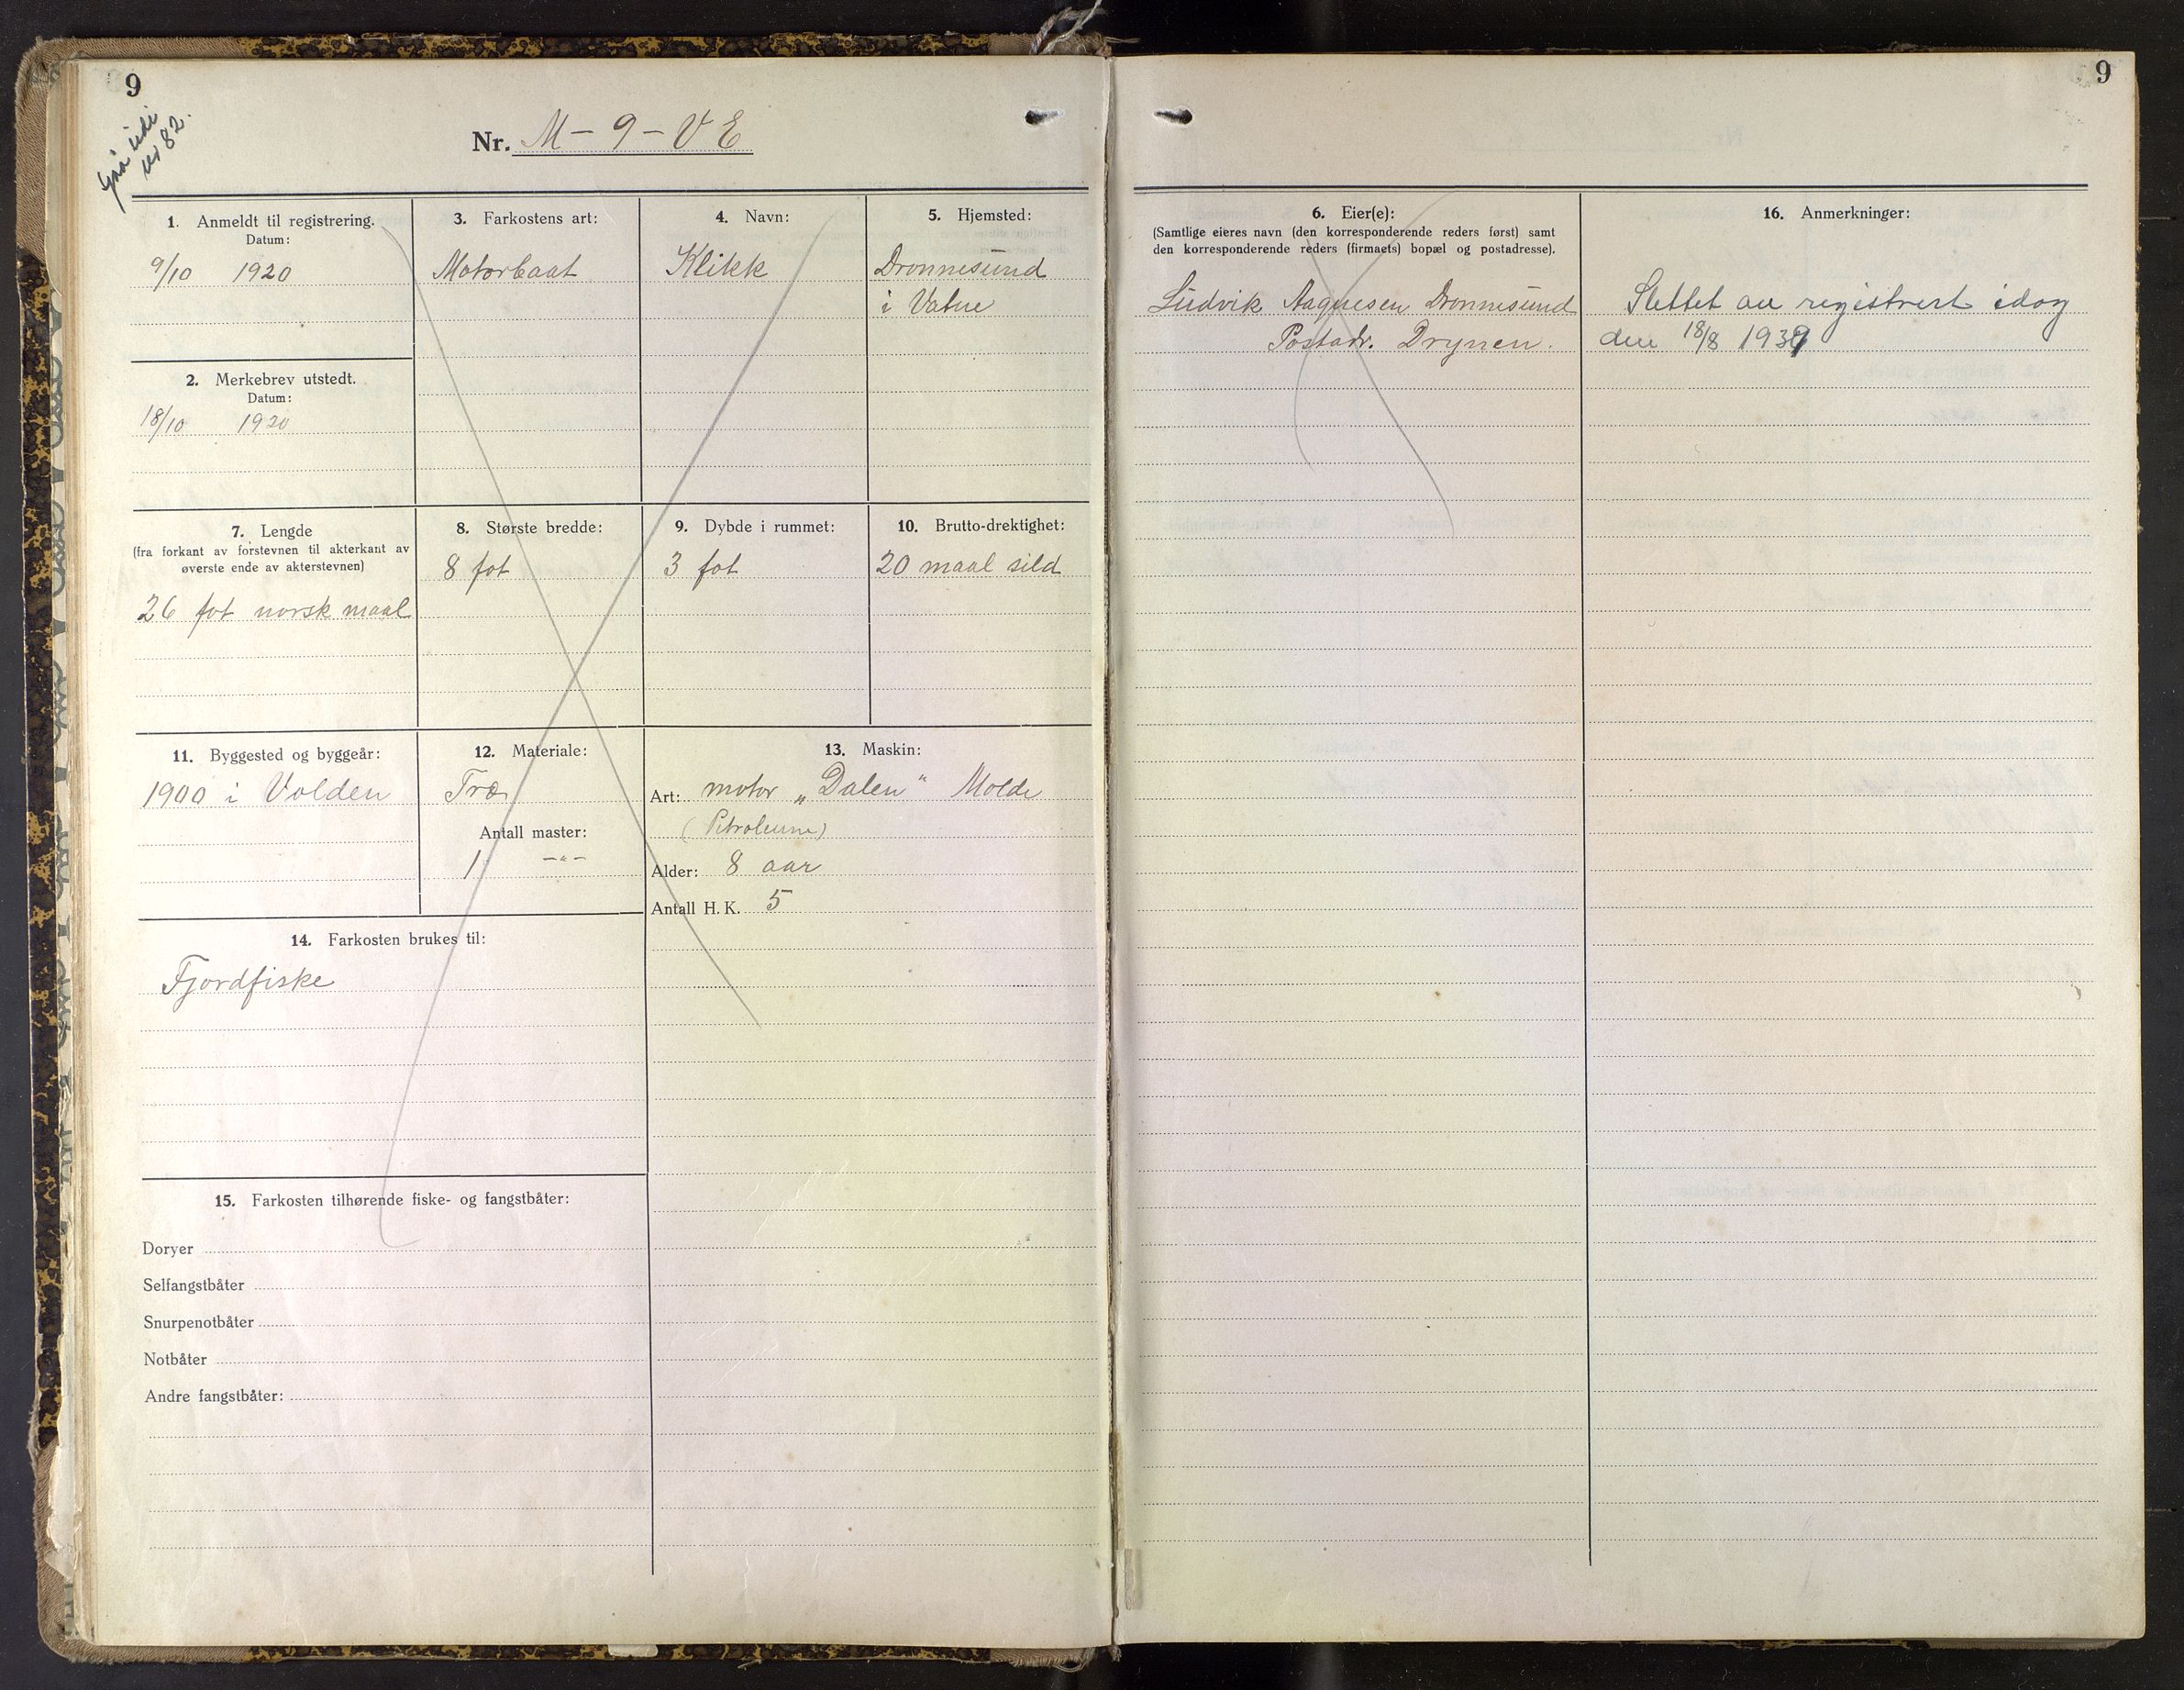 9
9
Gå inti
nr 82.
Nr. M-9-VE
1. Anmeldt til registrering.
Datum:
9/10 1920
2. Merkebrev utstedt.
Datum:
18/10 1920
3. Farkostens art:
Motorbaat
4. Navn:
Klikk
5. Hjemsted:
Dronnesund
i Vatne
7. Lengde
(fra forkant av forstevnen til akterkant av
øverste ende av akterstevnen)
26 fot norsk maal
8. Største bredde:
8 fot
9. Dybde i rummet:
3 fot
10. Brutto-drektighet:
20 maal sild
11. Byggested og byggeår:
1900 i Volden
12. Materiale:
Træ
Antall master:
1 -"-
13. Maskin:
Art: motor „Dalen“ Molde
(Petroleum)
Alder: 8 aar
Antall H. K. 5
14. Farkosten brukes til:
Fjordfiske
15. Farkosten tilhørende fiske- og fangstbåter:
Doryer
Selfangstbåter
Snurpenotbåter
Notbåter
Andre fangstbåter:
6. Eier(e):
(Samtlige eieres navn (den korresponderende reders først) samt
den korresponderende reders (firmaets) bopæl og postadresse).
Ludvik Aagnesen Dronnesund
Postadr. Drynen.
16. Anmerkninger:
Slettet av registret idag
den 18/8 1939